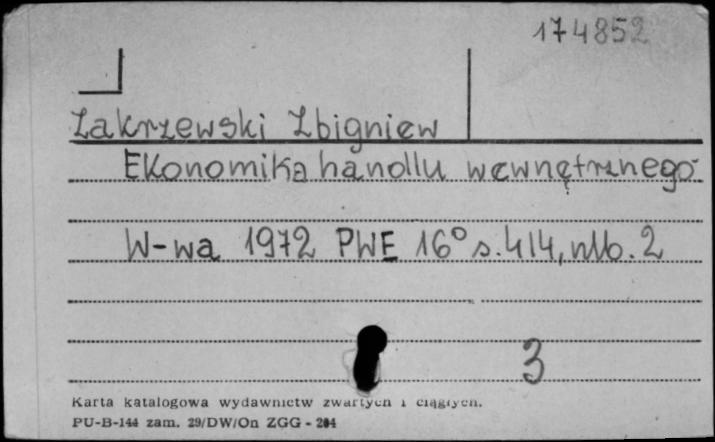 174852
Zakrzewski Zbigniew
Ekonomika handlu wewnętrznego
W-wa 1972 PWE 16° s. 414, nlb. 2
3
Karta katalogowa wydawnictw zwartych i ciągłych.
PU-B-144 zam. 29/DW/On ZGG - 204